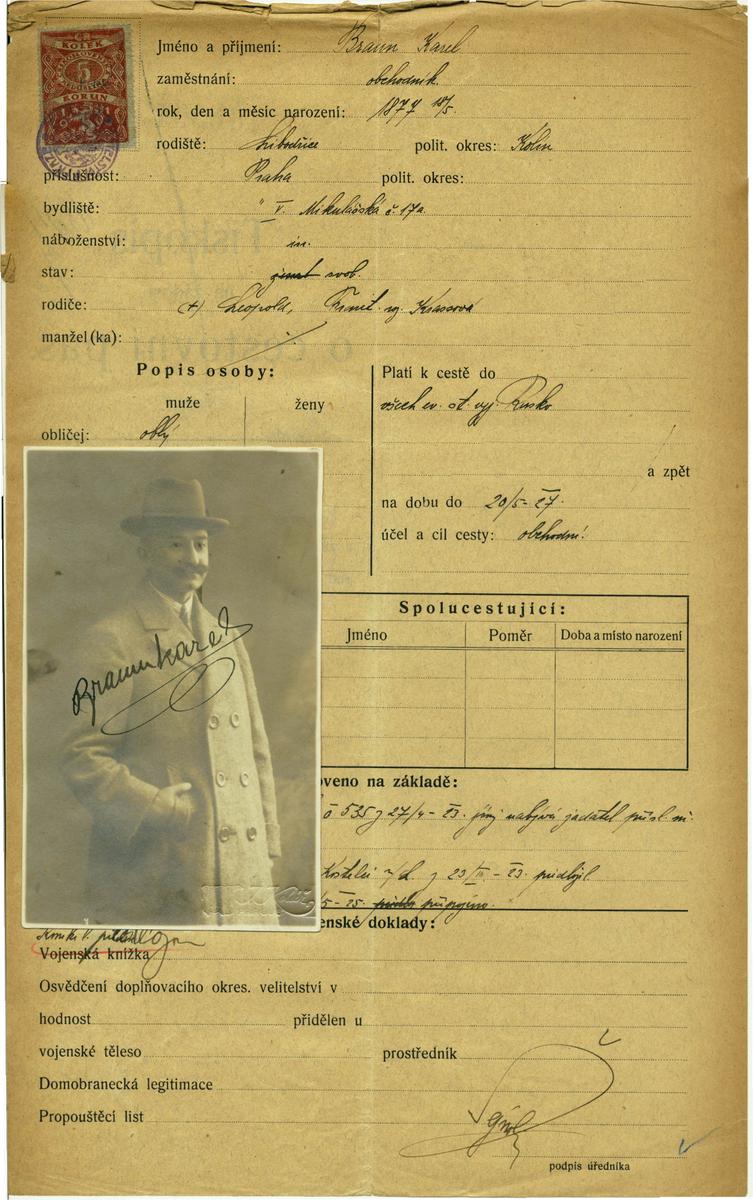 KOLEK
5
KORUN
Jméno a příjmení: Braun Karel
zaměstnání: obchodník.
rok, den a měsíc narození: 1877 18/5.
rodiště: Libodřice polit. okres: Kolín
příslušnost: Praha polit. okres:
bydliště: " V. Mikulášská č. 17a.
náboženství:
stav: svob.
rodiče: (+) Leopold,
manžel(ka):
Popis osoby:
muže ženy
obličej: oblý
Platí k cestě do
všech ev. st. vyj. Rusko
a zpět
na dobu do 20/5-27.
účel a cíl cesty: obchodní.
Spolucestující:
Jméno Poměr Doba a místo narození
Braun Karel
oveno na základě:
č 535 z 27/4 - 23. jímž nabývá žadatel přísl.
z 23/III - 23. předlžil
5 - 25. připojeno.
enské doklady:
Vojenská knížka
Osvědčení doplňovacího okres. velitelství v
hodnost přidělen u
vojenské těleso prostředník
Domobranecká legitimace
Propouštěcí list
podpis úředníka